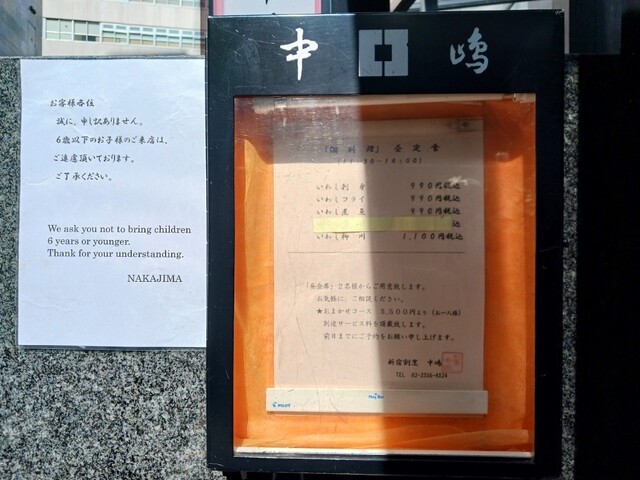 お客様各位
誠に、申し訳ありません。
6歳以下のお子様のご来店は、
ご遠慮頂いております。
ご了承ください。
We ask you not to bring children
6 years or younger.
Thank for your understanding.
NAKAJIMA
中 嶋
理』 昼 定 食
(11:30-14:00)
いわし刺 身 990円税込
いわしフライ 990円税込
いわし煮 魚 990円税込
込
いわし柳 川 1,100円税込
『昼会席』2名様からご用意致します。
お気軽に、ご相談ください。
★おまかせコース 5,500円より (お一人様)
別途サービス料を頂戴致します。
前日までにご予約をお願い申し上げます。
新宿割烹 中嶋
TEL 03-3356-4534
PILOT